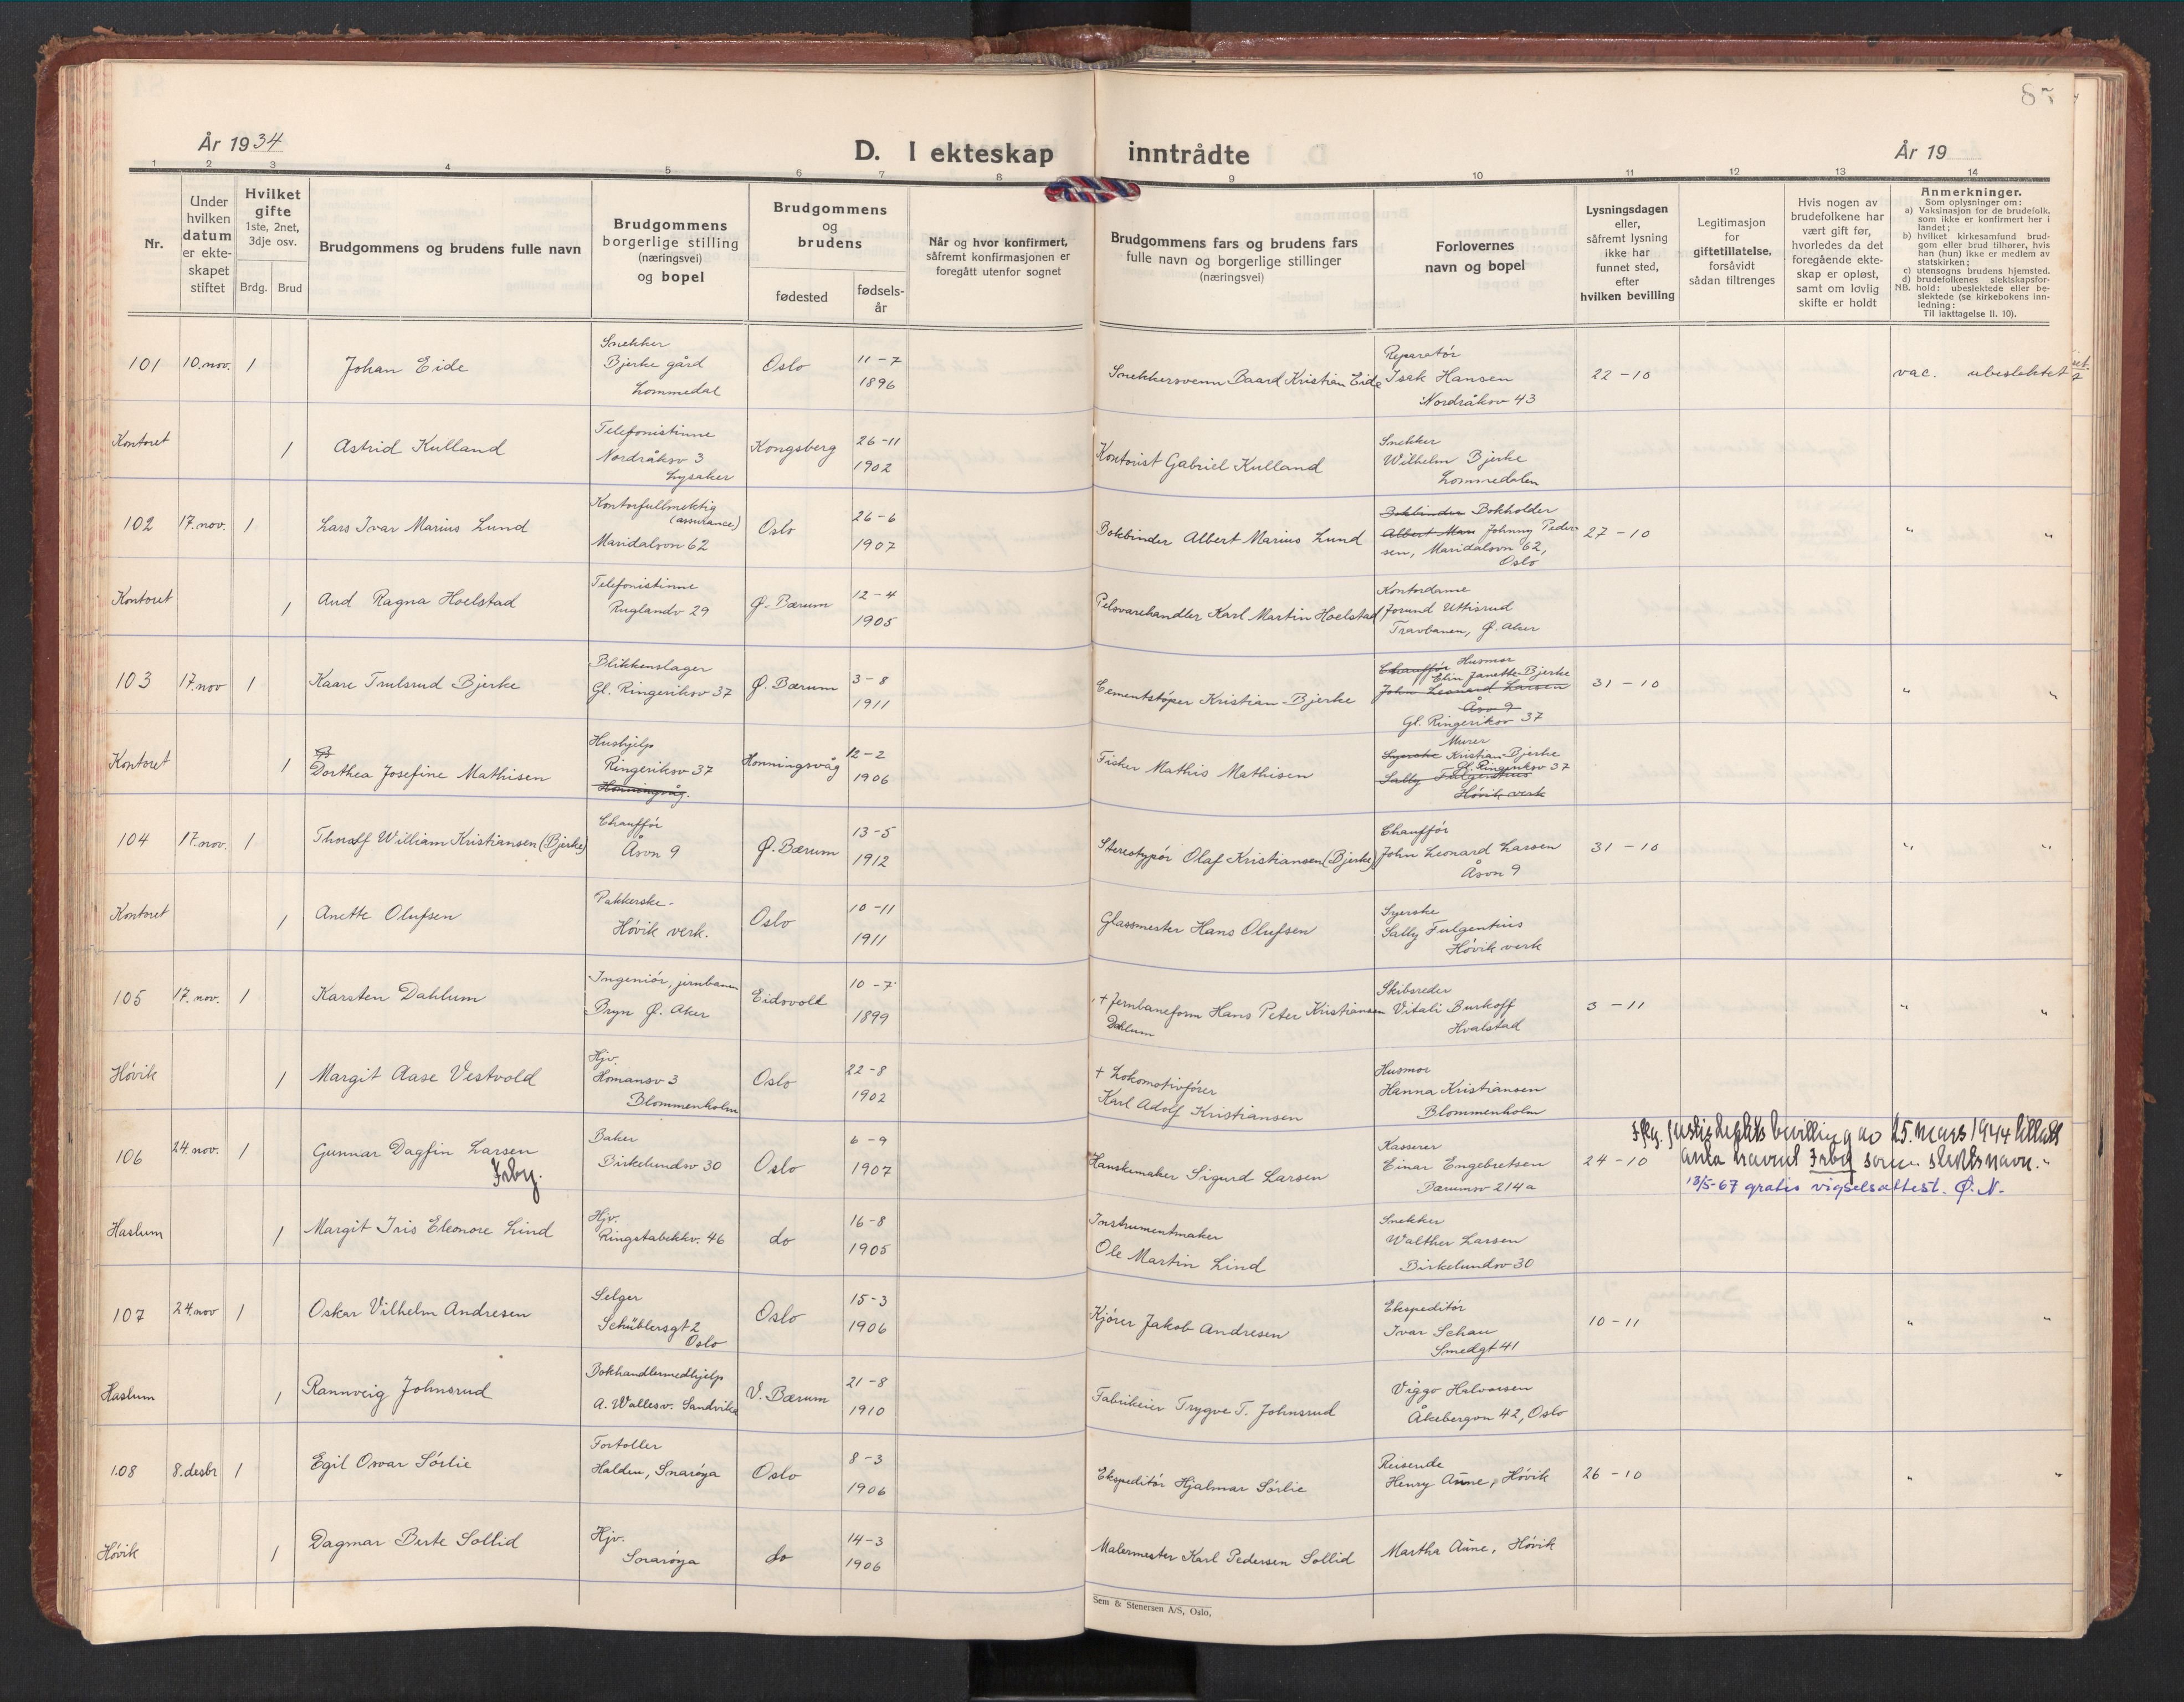 År 1934
D. I ekteskap inntrådte
År 19
85
1 2 3 4 5 6 7 8 9 10 11 12 13 14
Nr.
Under hvilken datum er ekteskapet stiftet
Hvilket gifte 1ste, 2net, 3dje osv.
Brdg. Brud
Brudgommens og brudens fulle navn
Brudgommens borgerlige stilling (næringsvei) og bopel
Brudgommens og brudens
fødested
fødselsår
Når og hvor konfirmert, såfremt konfirmasjonen er foregått utenfor sognet
Brudgommens fars og brudens fars fulle navn og borgerlige stillinger (næringsvei)
Forlovernes navn og bopel
Lysningsdagen eller, såfremt lysning ikke har funnet sted, efter hvilken bevilling
Legitimasjon for giftetillatelse, forsåvidt sådan tiltrenges
Hvis nogen av brudefolkene har vært gift før, hvorledes da det foregående ekteskap er opløst, samt om lovlig skifte er holdt
Anmerkninger.
Som oplysninger om:
a) Vaksinasjon for de brudefolk, som ikke er konfirmert her i landet;
b) hvilket kirkesamfund brudgom eller brud tilhører, hvis han (hun) ikke er medlem av statskirken;
c) utensogns brudens hjemsted.
d) brudefolkenes slektskapsforhold: ubeslektede eller beslektede (se kirkebokens innledning:
NB.
Til iakttagelse II. 10).
101 10. nov. 1 Johan Eide Snekker Bjerke gård Lommedal Oslo 11-7 1896 Snekkersvenn Baard Kristian Eide Reparatør Isak Hansen Nordråksv 43 22-10 vac. ubeslektet
Kontoret 1 Astrid Kulland Telefonistinne Nordråksv 3 Lysaker Kongsberg 26-11 1902 Kontorist Gabriel Kulland Snekker Wilhelm Bjerke Lommedalen
102 17. nov. 1 Lars Ivar Marius Lund Kontorfullmektig (assurance) Maridalsvn 62 Oslo 26-6 1907 Bokbinder Albert Marius Lund Bokbinder Bokholder Albert Mari Johnny Pedersen, Maridalsvn 62, Oslo 27-10 " "
Kontoret 1 Aud Ragna Hoelstad Telefonistinne Ruglandv 29 Ø. Bærum 12-4 1905 Pelsvarehandler Karl Martin Hoelstad Kontordame Jorund Uttisrud Travbanen, Ø. Aker
103 17. nov 1 Kaare Trulsrud Bjerke Blikkenslager Gl. Ringeriksv 37 Ø. Bærum 3-8 1911 Cementstøper Kristian Bjerke Chauffør Husmor Elin Janette Bjerke John Leonard Larsen Åsvn 9 Gl. Ringeriksv 37 31-10 " "
Kontoret 1 Dorthea Josefine Mathisen Hushjelp Ringeriksv 37 Honningsvåg. Honningsvåg 12-2 1906 Fisker Mathis Mathisen Murer Syerske Kristian Bjerke Gl. Ringeriksv 37 Sally Fulgentius Høvik verk
104 17. nov. 1 Thoralf William Kristiansen (Bjerke) Chauffør Åsvn 9 Ø. Bærum 13-5 1912 Stereotypør Olaf Kristiansen (Bjerke) Chauffør John Leonard Larsen Åsvn 9 31-10 " "
Kontoret 1 Anette Olufsen Pakkerske Høvik verk. Oslo 10-11 1911 Glassmester Hans Olufsen Syerske Sally Fulgentius Høvik verk
105 17. nov. 1 Karsten Dahlum Ingeniør, jernbanen Bryn Ø. Aker Eidsvold 10-7 1899 + Jernbaneform Hans Peter Kristiansen Dahlum Skibsreder Vitali Burkoff Hvalstad 3-11 " "
Høvik 1 Margit Aase Vestvold Hjv. Homansv 3 Blommenholm Oslo 22-8 1902 + Lokomotivfører Karl Adolf Kristiansen Husmor Hanna Kristiansen Blommenholm
106 24. nov. 1 Gunnar Dagfin Larsen Isby. Baker Birkelundsv 30 Oslo 6-9 1907 Hanskemaker Sigurd Larsen Kasserer Einar Engebretsen Bærumsv 214a 24-10
justisdeptets bevilling av 25. mars 1944 tillatt
anta navnet Isby som slektsnavn. "
18/5-67 gratis vigselsattest. Ø. N.
Haslum 1 Margit Iris Eleonore Lind Hjv. Ringstabekkv. 46 do 16-8 1905 Instrumentmaker Ole Martin Lind Snekker Walther Larsen Birkelundsv 30
107 24. nov 1 Oskar Vilhelm Andresen Selger Schüblersgt 2 Oslo Oslo 15-3 1906 Kjører Jakob Andresen Ekspeditør Ivar Schau Smedgt 41 10-11 " "
Haslum 1 Rannveig Johnsrud Bokhandlermedhjelp A. Wallesv. Sandvika V. Bærum 21-8 1910 Fabrikeier Trygve T. Johnsrud Viggo Halvorsen Åkebergvn 42, Oslo
108 8. desbr 1 Egil Osvar Sørlie Fortoller Halden, Snarøya Oslo 8-3 1906 Ekspeditør Hjalmar Sørlie Reisende Henry Aune, Høvik 26-10 " "
Høvik 1 Dagmar Berte Sollid Hjv. Snarøya do 14-3 1906 Malermester Karl Pedersen Sollid Martha Aune, Høvik
Sem & Stenersen A/S, Oslo.